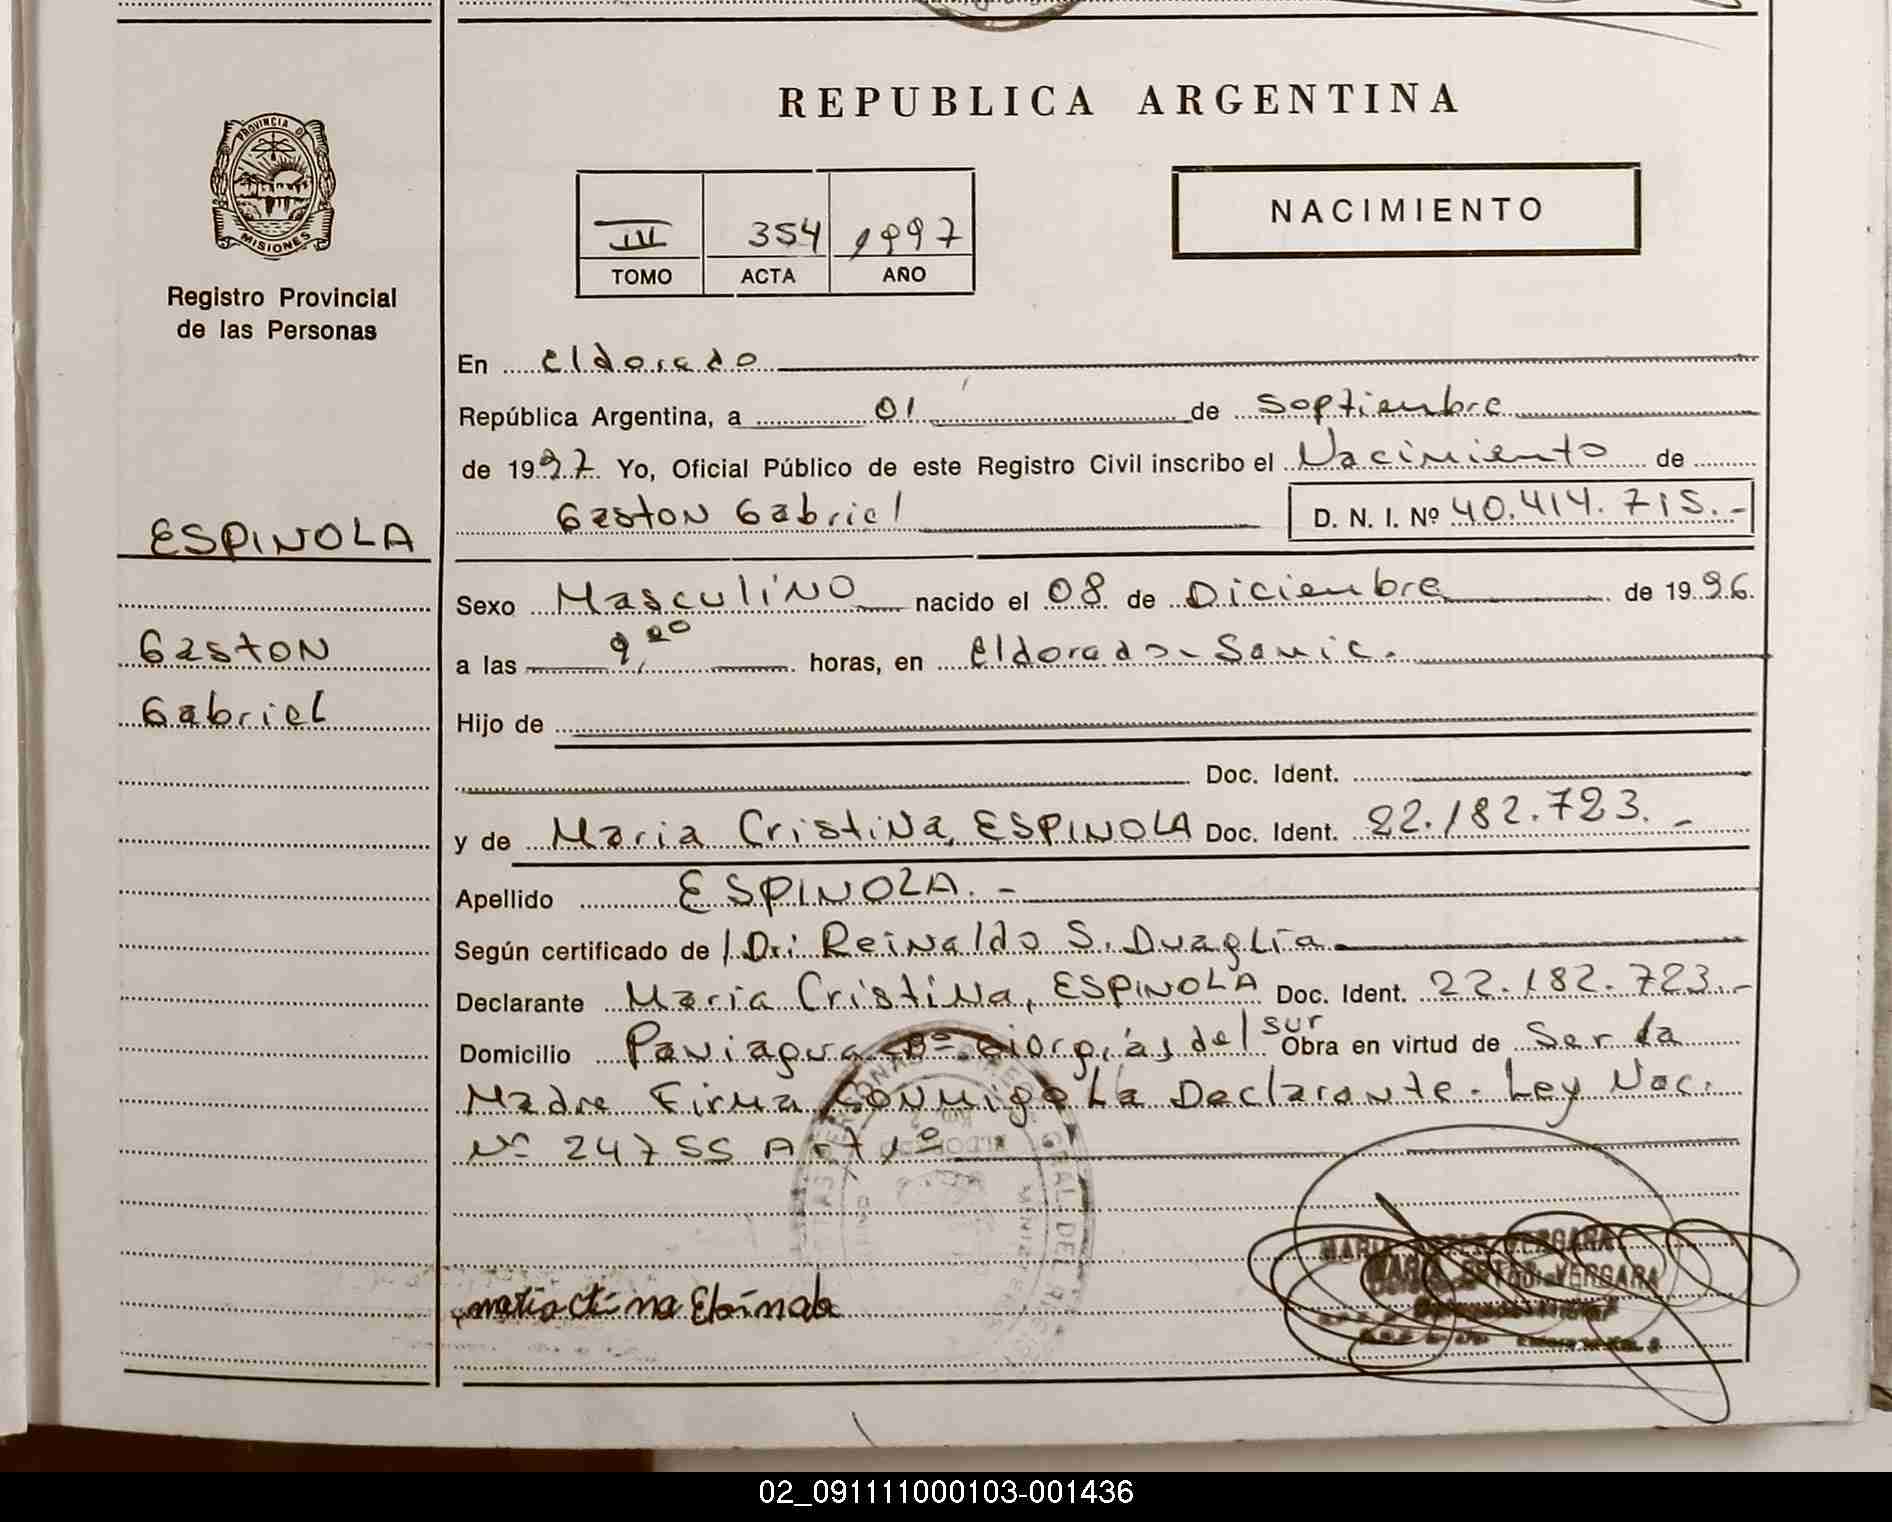 REPUBLICA ARGENTINA
PROVINCIA D
MISIONES
Registro Provincial
de las Personas
III 354 1997
TOMO ACTA AÑO
NACIMIENTO
En eldorado
República Argentina, a 01 de Septiembre
de 1997. Yo, Oficial Público de este Registro Civil inscribo el Nacimiento de
Gaston Gabriel D. N. I. Nº 40.414.715.-
ESPINOLA
Gaston
Gabriel
Sexo Masculino nacido el 08 de Diciembre de 1996.
a las 9,20 horas, en eldorado - Samic.
Hijo de
Doc. Ident.
y de Maria Cristina, ESPINOLA Doc. Ident. 22.182.723.-
Apellido ESPINOLA.-
Según certificado de Dr: Reinaldo S. Duaglia
Declarante Maria Cristina, ESPINOLA Doc. Ident. 22.182.723.-
Domicilio Paviagua Bº del sur Obra en virtud de Ser la
Madre Firma Conmigo La Declarante. Ley Nac.
Nº 24755 Art 1º
VERGARA
VERGARA
02_091111000103-001436